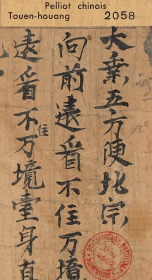 Pelliot chinois
Touen-houang 2058
大乘五方便北宗
向前遠看不住万境
遠看不住万境𡱈身直